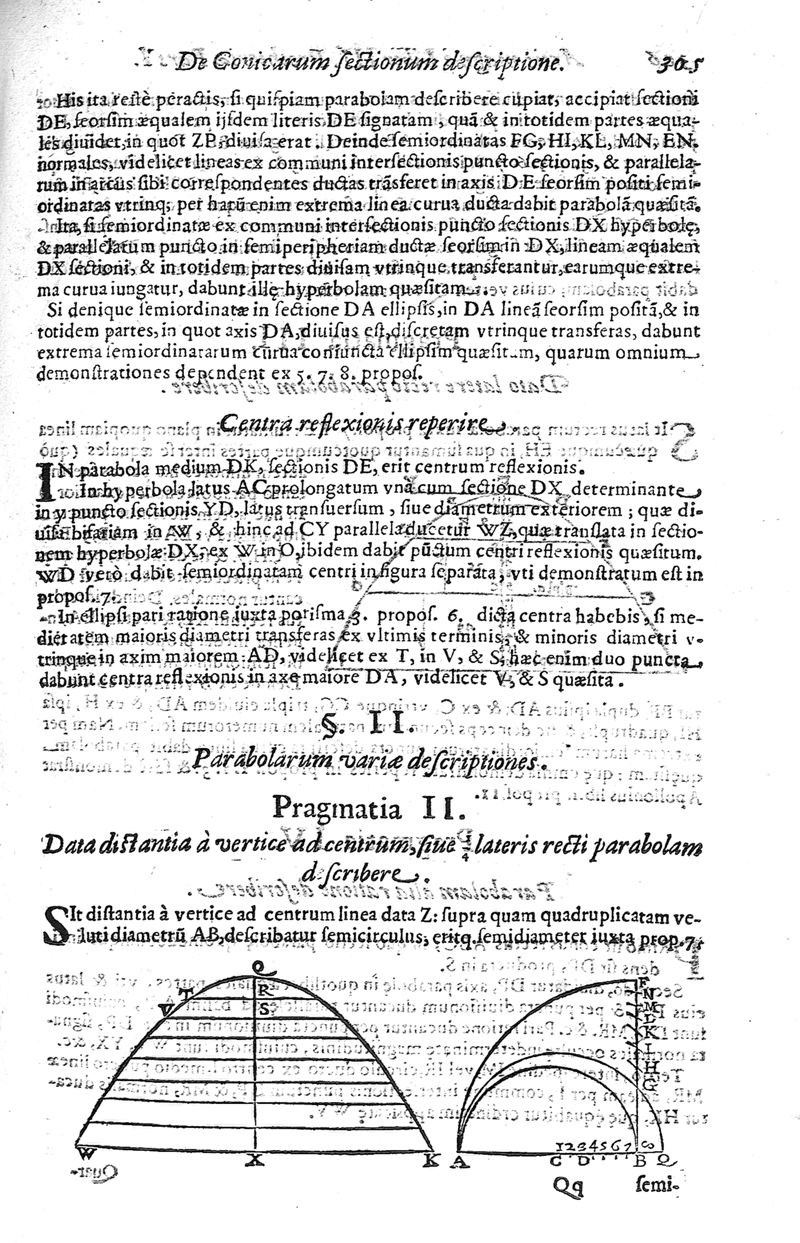 De Conicarum sectionum descriptione. 365
His ita restè peractis, si quispiam parabolam describere cupiat, accipiat sectioni
DE, seorsim æqualem ijsdem literis DE signatam, quā & in totidem partes æqua-
les diuidet, in quot ZP, diuisa erat. Deinde semiordinatas FG, HI, KL, MN, EN,
normales, videlicet lineas ex communi intersectionis puncto sectionis, & parallela-
rum in arcus sibi correspondentes ductas trāsferet in axis DE seorsim positi semi-
ordinatas vtrinq; per harū enim extrema linea curua ducta dabit parabolā quæsitā.
Ita, si semiordinatæ ex communi intersectionis puncto sectionis DX hyperbolę,
& parallelarum puncto in semiperipheriam ductæ seorsim in DX, lineam æqualem
DX sectioni, & in totidem partes diuisam vtrinque transferantur, earumque extre-
ma curua iungatur, dabunt illę hyperbolam quæsitam.
Si denique semiordinatæ in sectione DA ellipsis, in DA lineā seorsim positā, & in
totidem partes, in quot axis DA, diuisus est, discretam vtrinque transferas, dabunt
extrema semiordinatarum curua coniuncta ellipsim quæsitam, quarum omnium
demonstrationes dependent ex 5. 7. 8. propos.
Centra reflexionis reperire.
IN parabola medium DK, sectionis DE, erit centrum reflexionis.
In hyperbola latus AC prolongatum vnà cum sectione DX determinante
in y puncto sectionis YD, latus transuersum, siue diametrum exteriorem; quæ di-
uisa bifariam in W, & hinc ad CY parallela ducetur WZ, quæ translata in sectio-
nem hyperbolæ DX, ex W in O, ibidem dabit pūctum centri reflexionis quæsitum.
WD verò dabit semiordinatam centri in figura separata, vti demonstratum est in
propos. 7.
In ellipsi pari ratione iuxta porisma 3. propos. 6. dicta centra habebis, si me-
dietatem maioris diametri transferas ex vltimis terminis, & minoris diametri v-
trinque in axim maiorem AD, videlicet ex T, in V, & S; hæc enim duo puncta
dabunt centra reflexionis in axe maiore DA, videlicet V, & S quæsita.
§. II.
Parabolarum variæ descriptiones.
Pragmatia II.
Data distantia à vertice ad centrum, siue ¼ lateris recti parabolam
describere.
SIt distantia à vertice ad centrum linea data Z: supra quam quadruplicatam ve-
luti diametrū AB, describatur semicirculus, eritq. semidiameter iuxta prop. 7.
Q
R
S
T
V
W X K
F
N
M
L
K
I
H
G
1 2 3 4 5 6 7 8
A C D B Q
Qq semi-